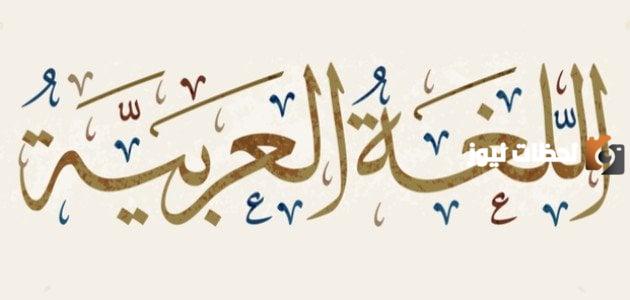 اللّغةُ العربيّةُ
لحظات نيوز